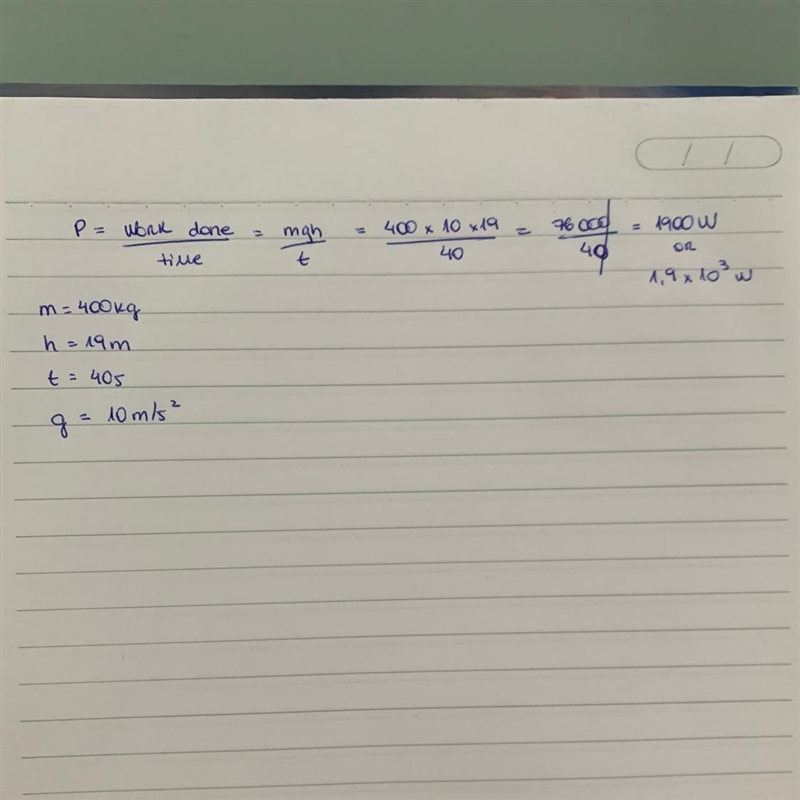 P = work done / time = mgh / t = 400 x 10 x 19 / 40 = 76000 / 40 = 1900 W
OR
1,9 x 10³ W
m = 400kg
h = 19m
t = 40s
g = 10m/s²
/ /